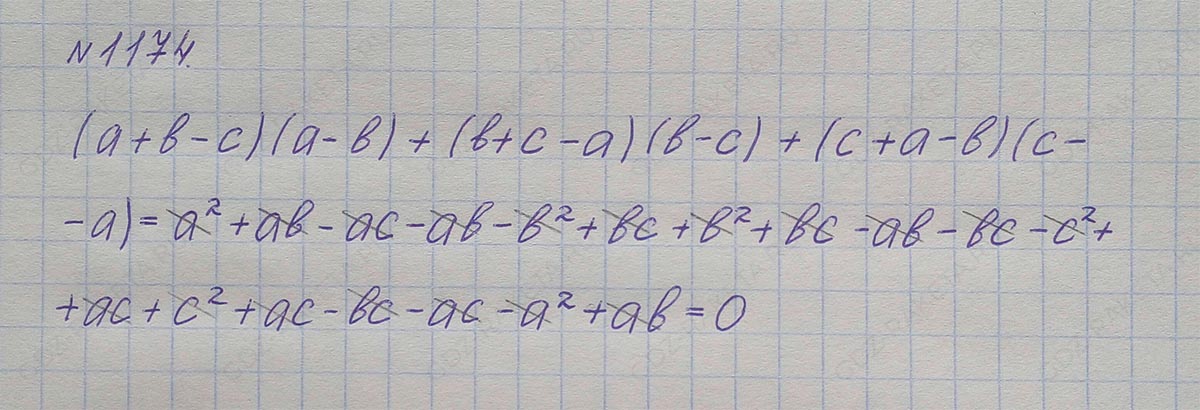 №1174.
(a+b-c)(a-b)+(b+c-a)(b-c)+(c+a-b)(c-
-a)=a²+ab-ac-ab-b²+bc+b²+bc-ab-bc-c²+
+ac+c²+ac-bc-ac-a²+ab=0